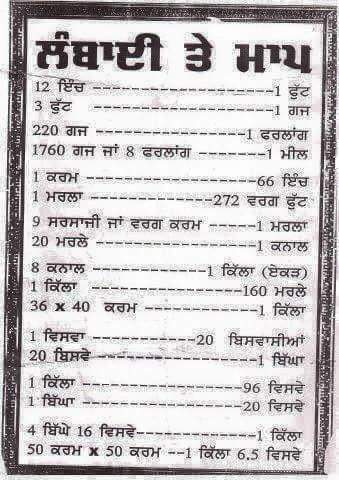 ਲੰਬਾਈ ਤੇ ਮਾਪ
12 ਇੰਚ ------------------1 ਫੁੱਟ
3 ਫੁੱਟ --------------------1 ਗਜ
220 ਗਜ ----------------1 ਫਰਲਾਂਗ
1760 ਗਜ ਜਾਂ 8 ਫਰਲਾਂਗ --------1 ਮੀਲ
1 ਕਰਮ -----------------66 ਇੰਚ
1 ਮਰਲਾ -------------272 ਵਰਗ ਫੁੱਟ
9 ਸਰਸਾਜੀ ਜਾਂ ਵਰਗ ਕਰਮ -----1 ਮਰਲਾ
20 ਮਰਲੇ -----------------1 ਕਨਾਲ
8 ਕਨਾਲ -------------1 ਕਿੱਲਾ (ਏਕੜ)
1 ਕਿੱਲਾ ------------------160 ਮਰਲੇ
36 x 40 ਕਰਮ -------------1 ਕਿੱਲਾ
1 ਵਿਸਵਾ -----------20 ਬਿਸਵਾਸੀਆਂ
20 ਬਿਸਵੇ -----------------1 ਬਿੱਘਾ
1 ਕਿੱਲਾ -----------------96 ਵਿਸਵੇ
1 ਬਿੱਘਾ -----------------20 ਵਿਸਵੇ
4 ਬਿੱਘੇ 16 ਵਿਸਵੇ------------1 ਕਿੱਲਾ
50 ਕਰਮ x 50 ਕਰਮ --1 ਕਿੱਲਾ 6.5 ਵਿਸਵੇ